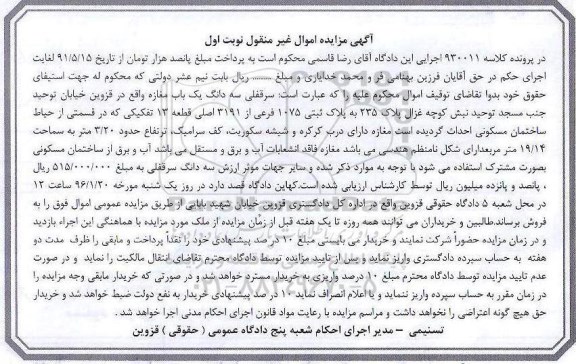 آگهی مزایده اموال غیر منقول نوبت اول
در پرونده کلاسه ۹۳۰۰۱۱ اجرایی این دادگاه آقای رضا قاسمی محکوم است به پرداخت مبلغ پانصد هزار تومان از تاریخ ۹۱/۵/۱۵ لغایت
اجرای حکم در حق آقایان فرزین بهنامی فر و محب خدایاری و مبلغ ـــــــ ریال بابت نیم عشر دولتی که محکوم له جهت استیفای
حقوق خود بدوا تقاضای توقیف اموال محکوم علیه را که عبارت است: سرقفلی سه دانگ یک باب مغازه واقع در قزوین خیابان توحید
جنب مسجد توحید نبش کوچه غزال پلاک ۲۳۵ به پلاک ثبتی ۱۰۷۵ فرعی از ۳۱۹۱ اصلی قطعه ۱۳ تفکیکی که در قسمتی از حیاط
ساختمان مسکونی احداث گردیده است مغازه دارای درب کرکره و شیشه سکوریت، کف سرامیک، ترتفاع حدود ۳/۲۰ متر به سماحت
۱۹/۱۴ متر مربعدارای شکل نامنظم هندسی می باشد مغازه فاقد انشعابات آب و برق و مستقل می باشد آب و برق از ساختمان مسکونی
بصورت مشترک استفاده می شود با توجه به موارد ذکر شده و سایر جهات موثر ارزش سه دانگ سرقفلی به مبلغ ۵۱۵/۰۰۰/۰۰۰ ریال
، پانصد و پانزده میلیون ریال توسط کارشناس ارزیابی شده است.کهاین دادگاه قصد دارد در روز یک شنبه مورخه ۹۶/۱/۲۰ ساعت ۱۲
در محل شعبه ۵ دادگاه حقوقی قزوین واقع در اداره کل دادگستری قزوین خیابان شهید بابایی از طریق مزایده عمومی اموال فوق را به
فروش برساند.طالبین و خریداران می توانند همه روزه تا یک هفته قبل از زمان مزایده از ملک مورد مزایده با هماهنگی این اجراء بازدید
و در زمان مزایده حضوراً شرکت نمایند و خریدار می بایستی مبلغ ۱۰ در صد پیشنهادی خود را نقداً پرداخت و مابقی را ظرف مدت دو
هفته به حساب سپرده دادگستری واریز نماید و پس از تایید مزایده توسط دادگاه محترم تقاضای انتقال مالکیت را نماید و در صورت
عدم تایید مزایده توسط دادگاه محترم مبلغ ۱۰ درصد واریزی به خریدار مسترد خواهد شد و در صورتی که خریدار مابقی وجه مزایده را
در زمان مقرر به حساب سپرده واریز ننماید و یا اعلام انصراف نماید ۱۰ در صد پیشنهادی خریدار به نفع دولت ضبط خواهد شد و خریدار
حق هیچ گونه اعتراضی را نخواهد داشت و مراسم مزایده با رعایت مواد قانون اجرای احکام مدنی اجرا خواهد شد .
تسنیمی – مدیر اجرای احکام شعبه پنج دادگاه عمومی ( حقوقی ) قزوین